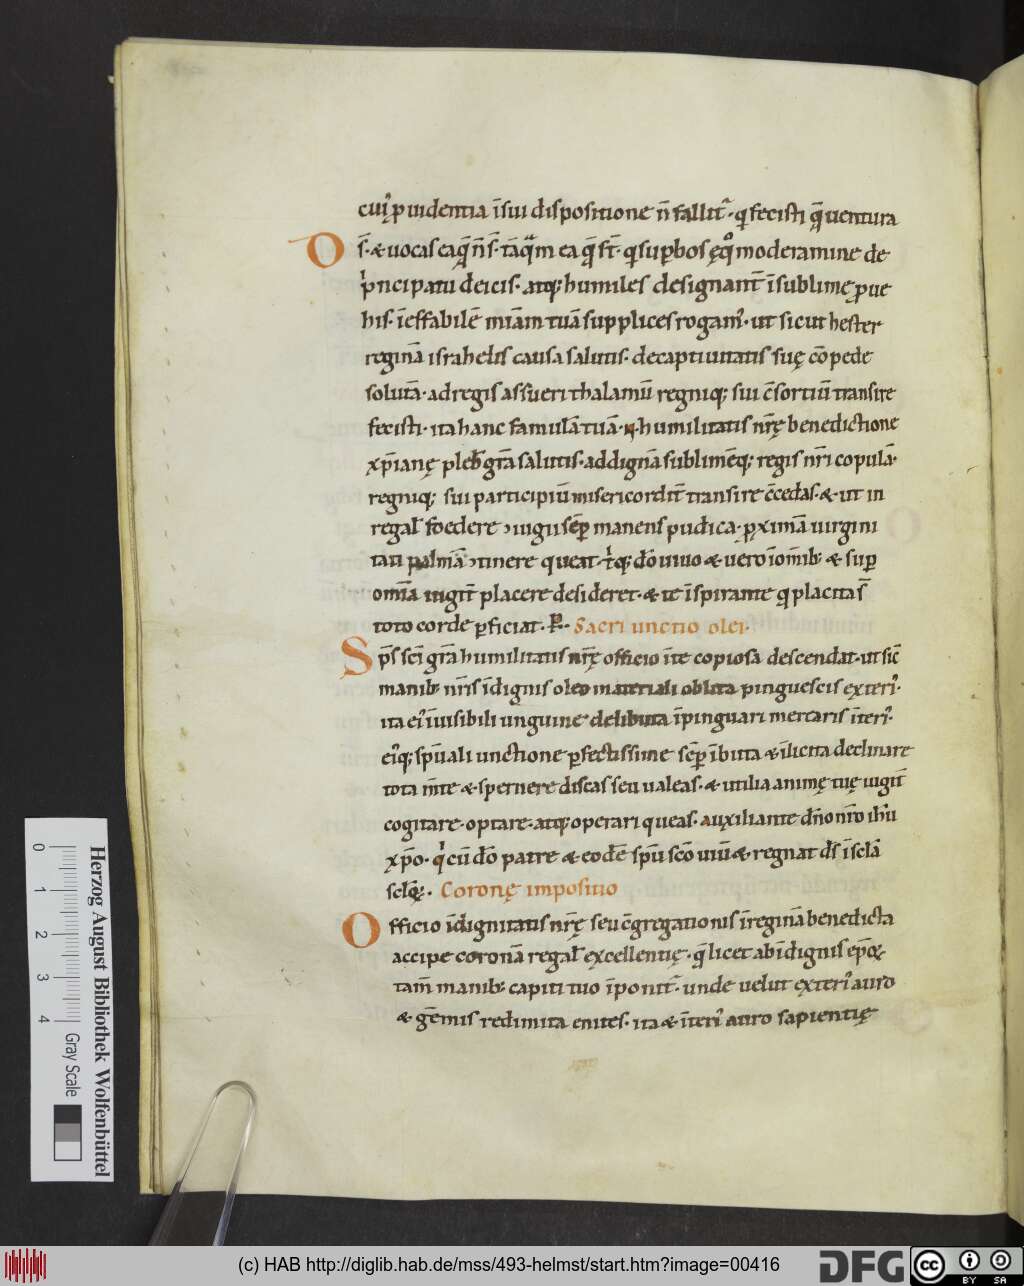 cuı᷒ p̱uidentia ī sui dispositione n̄ fallit᷑· q̇ fecisti q̄ uentura
O s̄· & uocas ea q̄ n̄ s̄· tāq̄m ea q̄ s̄t· q̇ sup̱bos ęq̊ moderamine de
p̍ncipatu deicis· atq; humiles designant̄ ī sublime p̱ue
his· ī effabilē mīam tuā supplices rogam᷒· ut sicut hester
reginā israhelis causa salutis· de captiuitatis suę cōpede
solutā· ad regis assueri thalamū regniq; sui c̄sortiū transire
fecisti· ita hanc famulā tuā· N· humilitatis nr̄ę benedictione
xp̄ianę pleb̄ gr̄a salutis· ad dignā sublimēq; regis nr̄i copulā·
regniq; sui participiū misericordit̄ transire c̄cedas· & ut in
regal̄ foedere ɔiugii sēp̱ manens pudica· p̱ximā uirgini
tati palmā ɔtinere queat· t̍q; dō uiuo & uero ī omīb; & sup̱
omīa iugit̄ placere desideret· & te īspirante q̄ placita s̄
toto corde p̱ficiat· P̱· Sacri unctio olei·
Sp̄s sc̄i gr̄a humilitatis nr̄ę officio ī te copiosa descendat· ut sic̄
manib; nr̄is īdignis oleo materiali oblita pinguescis exteri᷒·
ita ei᷒ īuisibili unguine delibuta īpinguari mercaris īteri᷒·
ei᷒q; sp̄uali unctione p̱fectissime sēp̱ ībuta & īlicita declinare
tota m̄te & spernere discas seu ualeas· & utilia animę tuę iugit̄
cogitare· optare· atq; operari queas· auxiliante dn̄o nr̄o ih̄u
xp̄o· q̍ cū dō patre & eodē sp̄u sc̄o uiū& & regnat ds̄ ī scl̄a
scl̄oꝝ·. Coronę impositio
Officio īdignitatis nr̄ę seu c̄gregationis ī reginā benedicta
accipe coronā regal̄ excellentię· q̄ licet ab īdignis ep̄oꝝ
tam̄ manib; capiti tuo īponit᷑· unde uelut exteri᷒ auro
& gēmis redimita enites· ita & īteri᷒ auro sapientię
Herzog August Bibliothek Wolfenbüttel
0 1 2 3 4 Gray Scale
(c) HAB http://diglib.hab.de/mss/493-helmst/start.htm?image=00416
DFG
cc BY SA